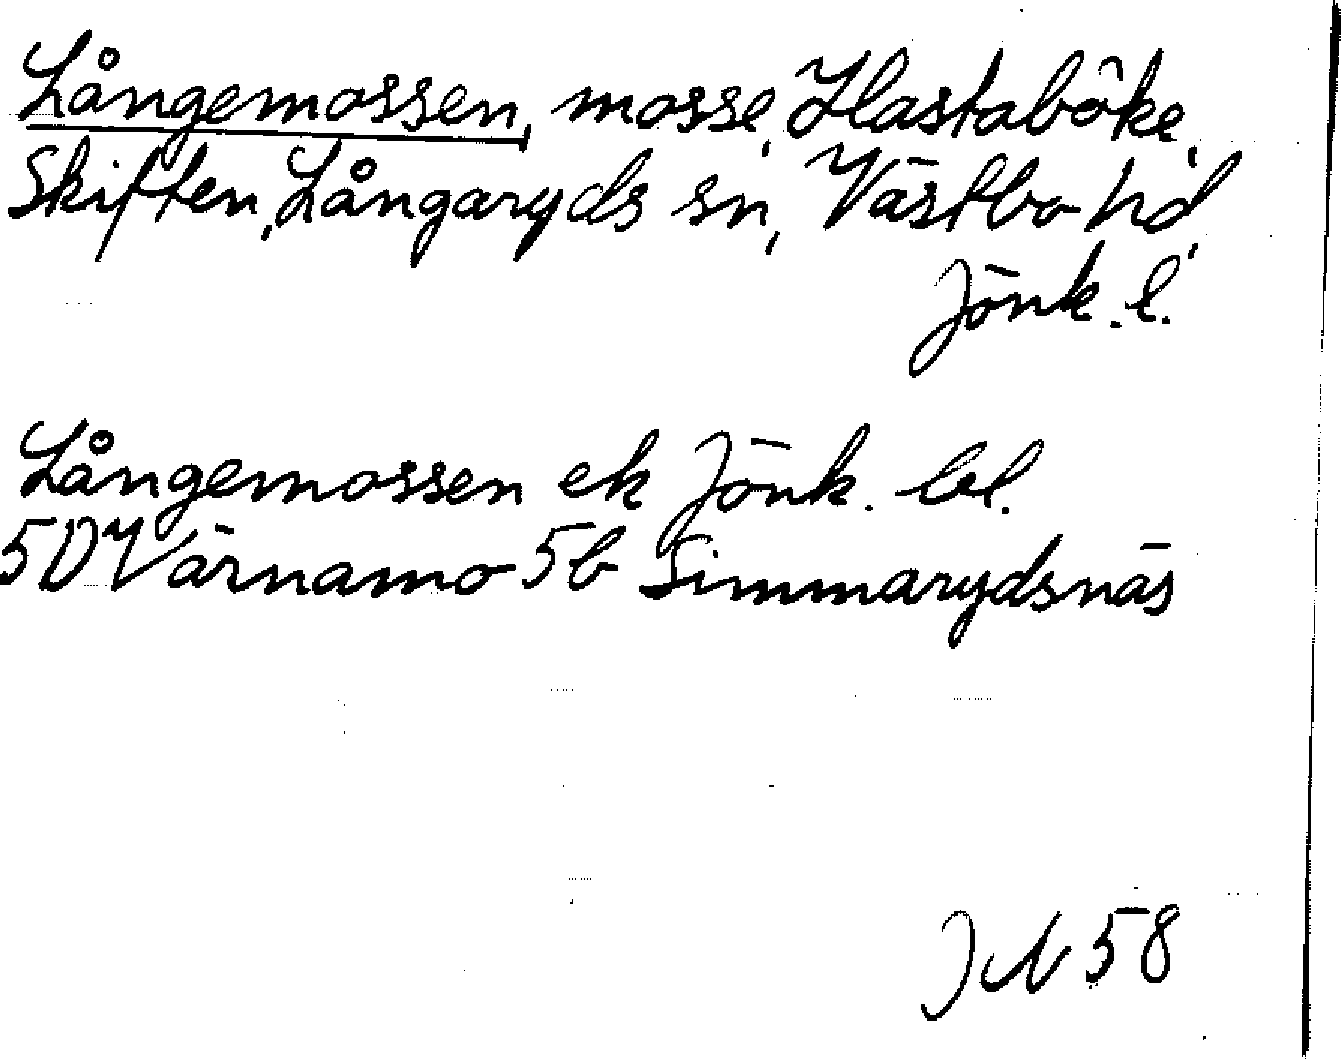 Långemossen, mosse, Hastaböke,
Skiften, Långaryds sn, Västbo hd,
Jönk. l.
Långemossen ek Jönk. lel.
5D Värnamo 5b Simmarydsnäs
58